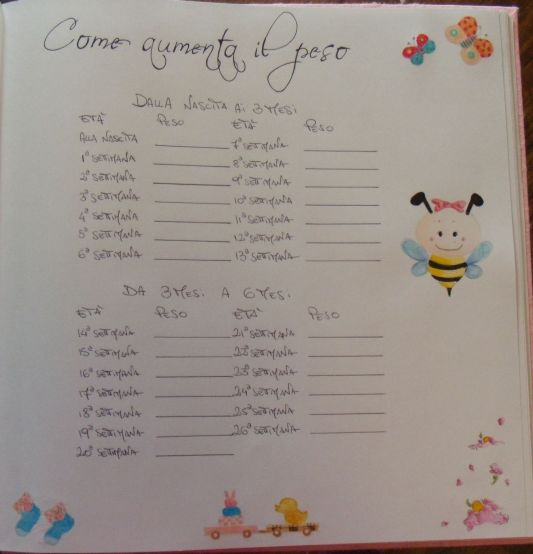 Come aumenta il peso
DALLA NASCITA AI 3 MESI
ETÀ PESO ETÀ PESO
ALLA NASCITA 7ª SETTIMANA
1ª SETTIMANA 8ª SETTIMANA
2ª SETTIMANA 9ª SETTIMANA
3ª SETTIMANA 10ª SETTIMANA
4ª SETTIMANA 11ª SETTIMANA
5ª SETTIMANA 12ª SETTIMANA
6ª SETTIMANA 13ª SETTIMANA
DA 3 MESI A 6 MESI
ETÀ PESO ETÀ PESO
14ª SETTIMANA 21ª SETTIMANA
15ª SETTIMANA 22ª SETTIMANA
16ª SETTIMANA 23ª SETTIMANA
17ª SETTIMANA 24ª SETTIMANA
18ª SETTIMANA 25ª SETTIMANA
19ª SETTIMANA 26ª SETTIMANA
20ª SETTIMANA